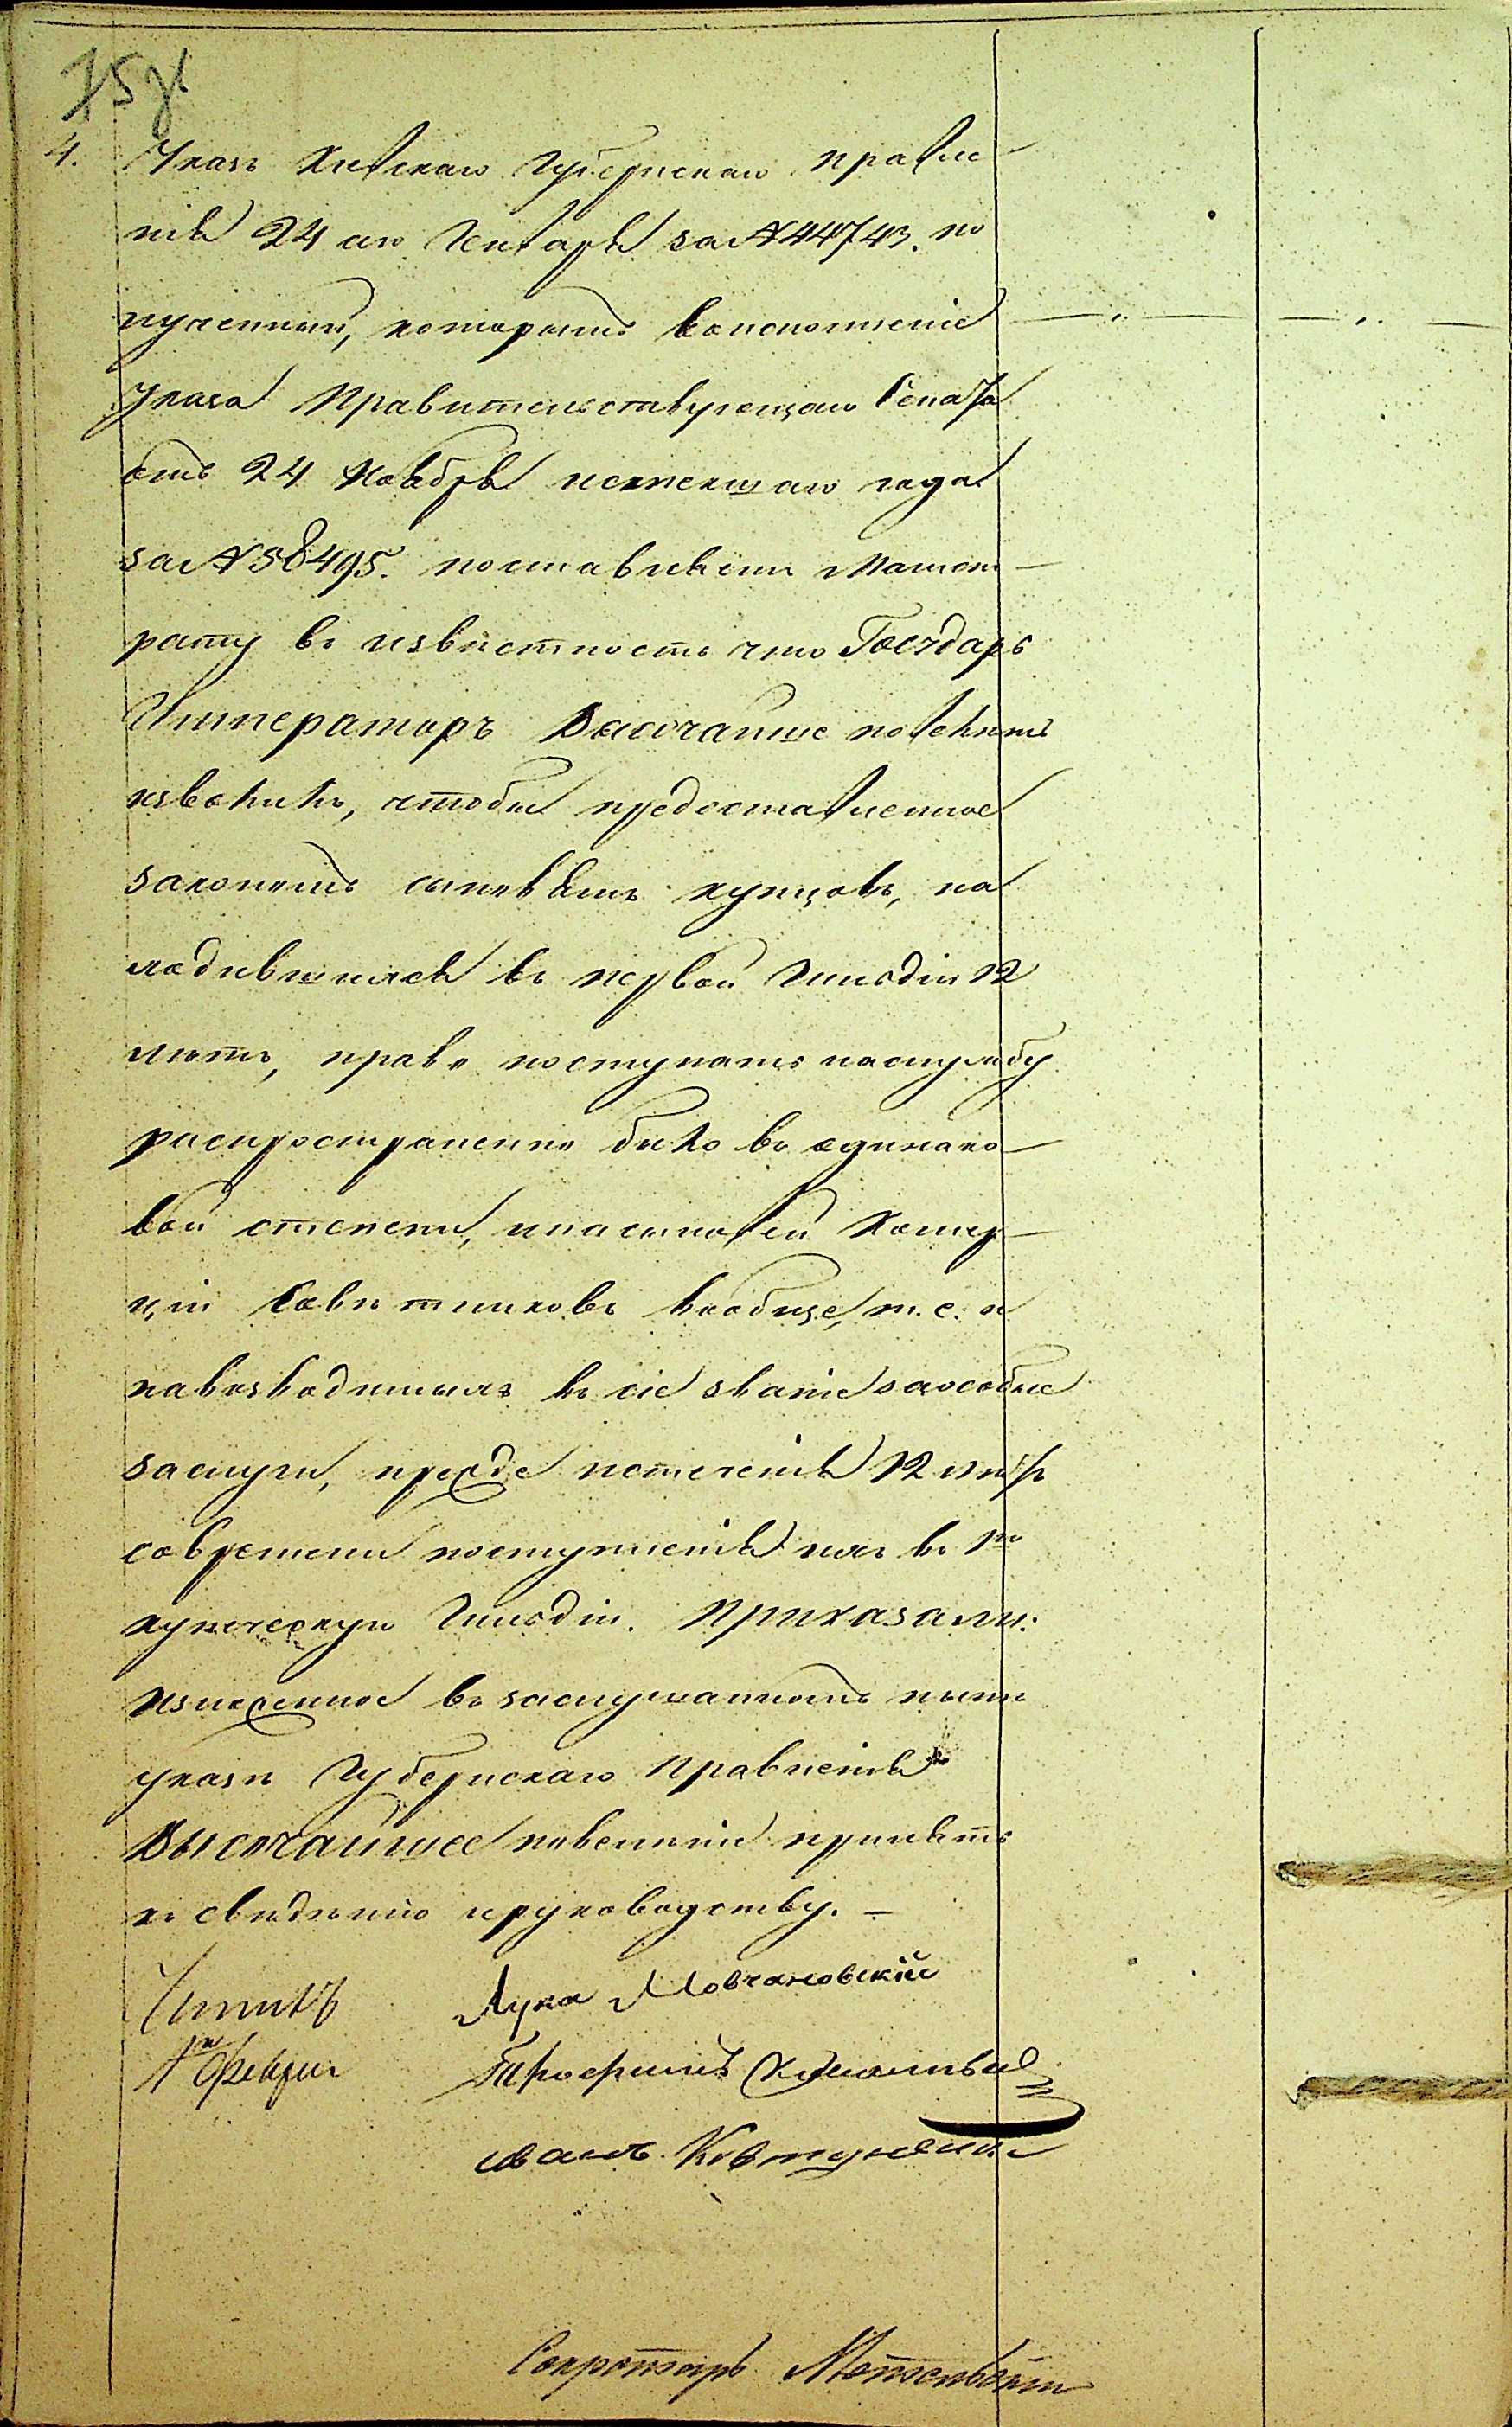 75 об
4. Указъ Кіевскаго Губернскаго правле
нія 24 сего Генваря за № 44743. по
лученный, которымъ во исполненіе
указа Правительствующаго Сената
отъ 24 Ноября истекшаго года
за № 58495. поставляетъ Магист
рату въ извѣстность что Государь
Императоръ Высочайше повелѣть
изволилъ, чтобы предоставленное
закономъ сыновьямъ купцовъ, на
ходившихся въ первой Гильдіи 12
лѣтъ, право поступать на службу
распространено было въ одинако
вой степени, и на сыновей Комер
ціи Совѣтниковъ вообще, т. е. и
на возводимыхъ въ сіе званіе за особые
заслуги, прежде истеченія 12 лѣтъ
со времени поступленія ихъ въ 1ю
купеческую Гильдію. Приказали:
Изъясненное въ заслушанномъ нынѣ
указѣ Губернскаго Правленія
Высочайшее повеленіе принять
къ свѣдѣнію и руководству. –
Лука Мовчановскій
1го Февраля
Иванъ Ковтуненко
Секретарь